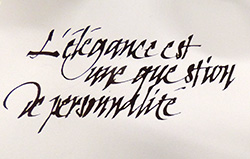 L'élégance est
une question
de personnalité